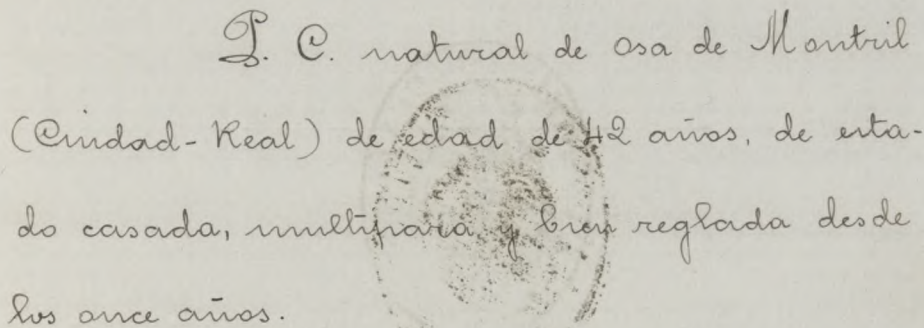 P. C. natural de Osa de Montril
(Ciudad-Real) de edad de 42 años, de esta-
do casada, multipara y bien reglada desde
los once años.